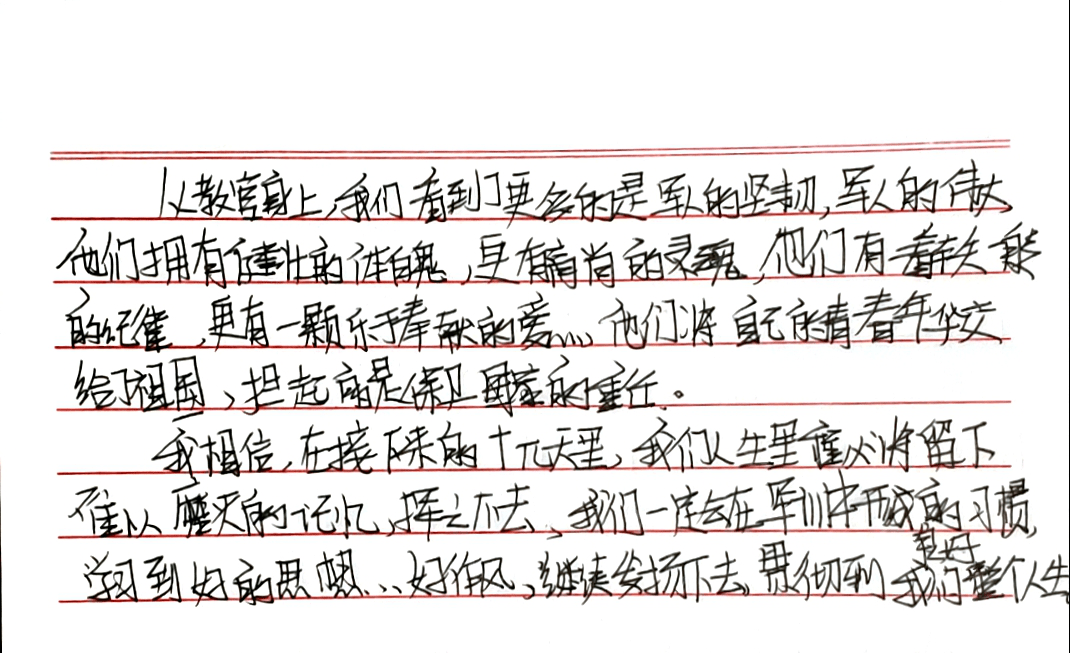 从教官身上，我们看到了更多的是军人的坚韧，军人的伟大，
他们拥有健壮的体魄，更有高尚的灵魂，他们有着铁一般
的纪律，更有一颗乐于奉献的爱心，他们将自己的青春年华交
给了祖国，担起的是保卫国家的重任。
我相信，在接下来的十几天里，我们人生里面必将留下
难以磨灭的记忆，挥之不去，我们一定会在军训中形成良好的习惯，
学习到好的思想、好作风，继续发扬下去，贯彻到我们整个人生